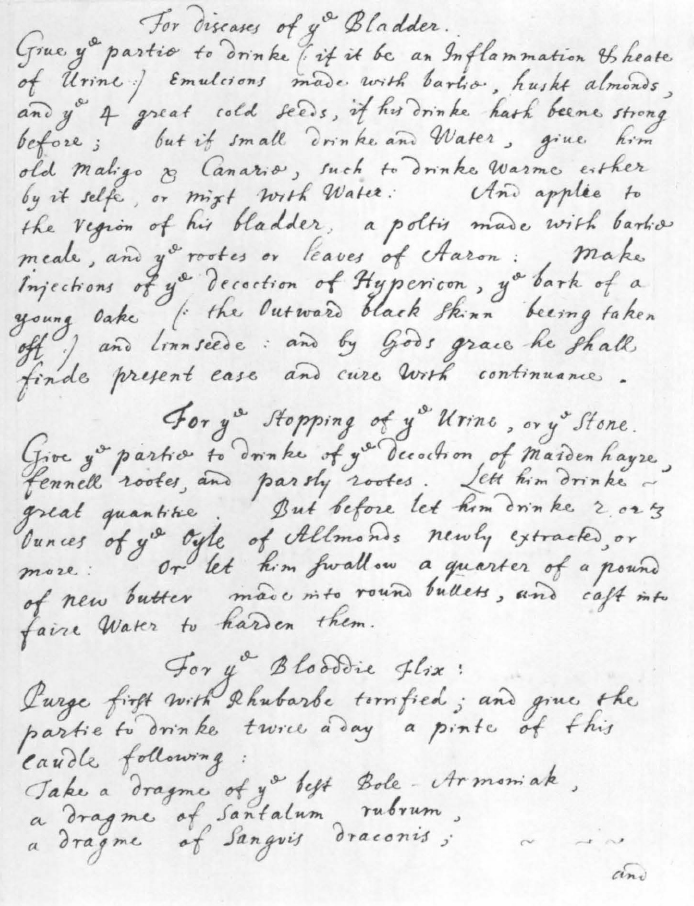 For diseases of yᵉ Bladder.
Giue yᵉ partie to drinke (: if it be an Inflammation & heate
of Urine :) Emulcions made with barlie, huskt almonds,
and yᵉ 4 great cold seeds, if his drinke hath beene strong
before; but if small drinke and Water, giue him
old Maligo & Canarie, such to drinke Warme either
by it selfe, or mixt With Water: And applie to
the region of his bladder, a poltis made with barlie
meale, and yᵉ rootes or leaves of Aaron: Make
Injections of yᵉ decoction of Hypericon, yᵉ bark of a
young Oake (: the Outward black skinn beeing taken
off :) and linnseede: and by Gods grace he shall
finde present ease and cure With continuance.
For yᵉ Stopping of yᵉ Urine, or yᵉ Stone.
Give yᵉ partie to drinke of yᵉ decoction of Maidenhayre,
fennell rootes, and parsly rootes. Lett him drinke ~
great quantitie. But before let him drinke 2 or 3
Ounces of yᵉ Oyle of Allmonds newly extracted, or
more: Or let him swallow a quarter of a pound
of new butter made into round bullets, and cast into
faire Water to harden them.
For yᵉ Blooddie flix:
Purge first with Rhubarbe torrified; and giue the
partie to drinke twice aday a pinte of this
caudle following:
Take a dragme of yᵉ best Bole-Armoniak,
a dragme of Santalum rubrum,
a dragme of Sanguis draconis; ~ ~ ~
and